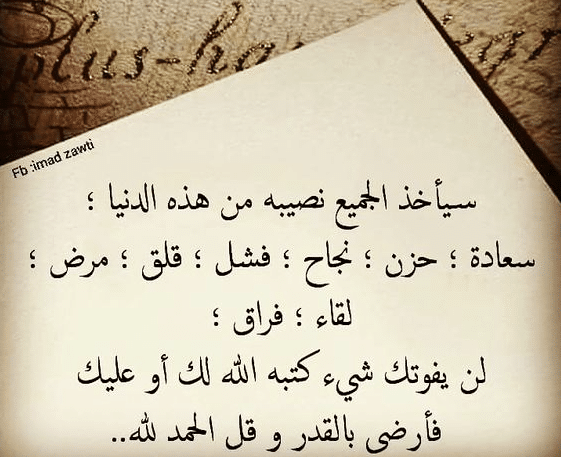 plus-ha
Fb :imad zawti
سيأخذ الجميع نصيبه من هذه الدنيا ؛
سعادة ؛ حزن ؛ نجاح ؛ فشل ؛ قلق ؛ مرض ؛
لقاء ؛ فراق ؛
لن يفوتك شيء كتبه الله لك أو عليك
فأرضى بالقدر و قل الحمد لله..